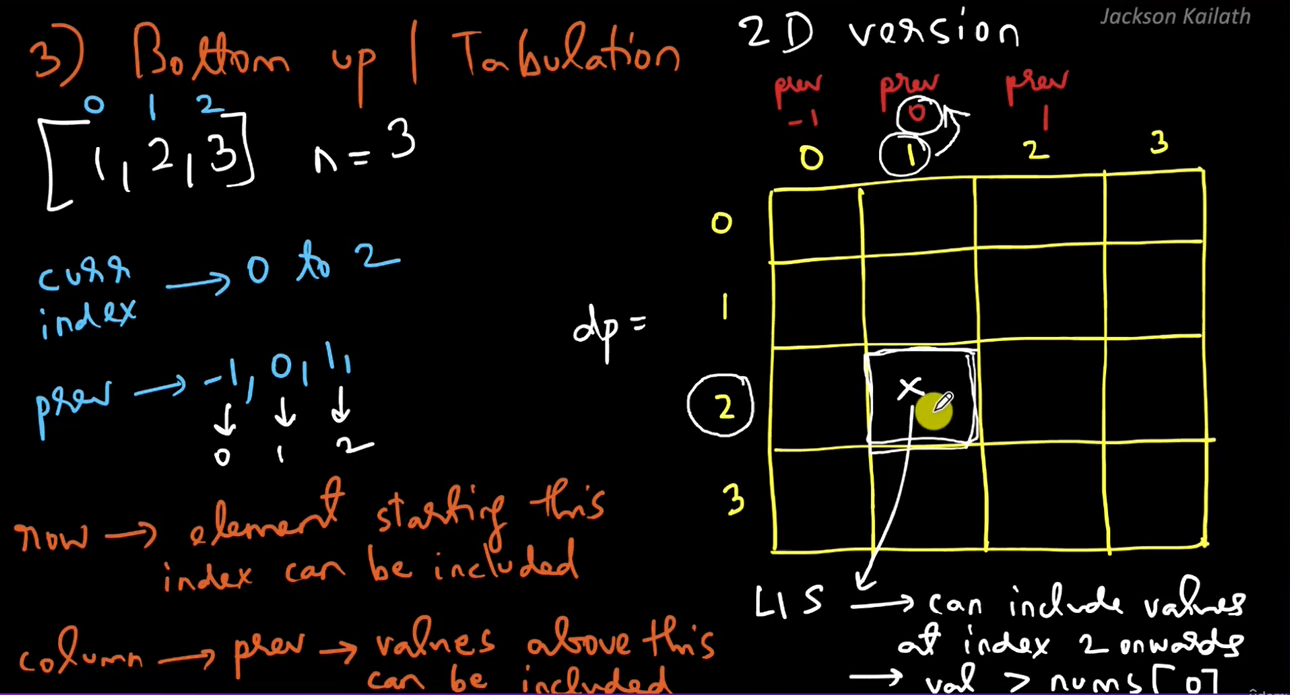 Jackson Kailath
3) Bottom up | Tabulation
0 1 2
[1, 2, 3] n = 3
curr index → 0 to 2
prev → -1, 0, 1,
0 1 2
row → element starting this
index can be included
column → prev → values above this
can be included
2D version
prev prev prev
-1 0 1
0 1 2 3
0
1
dp =
2
x
3
LIS → can include values
at index 2 onwards
→ val > nums[0]